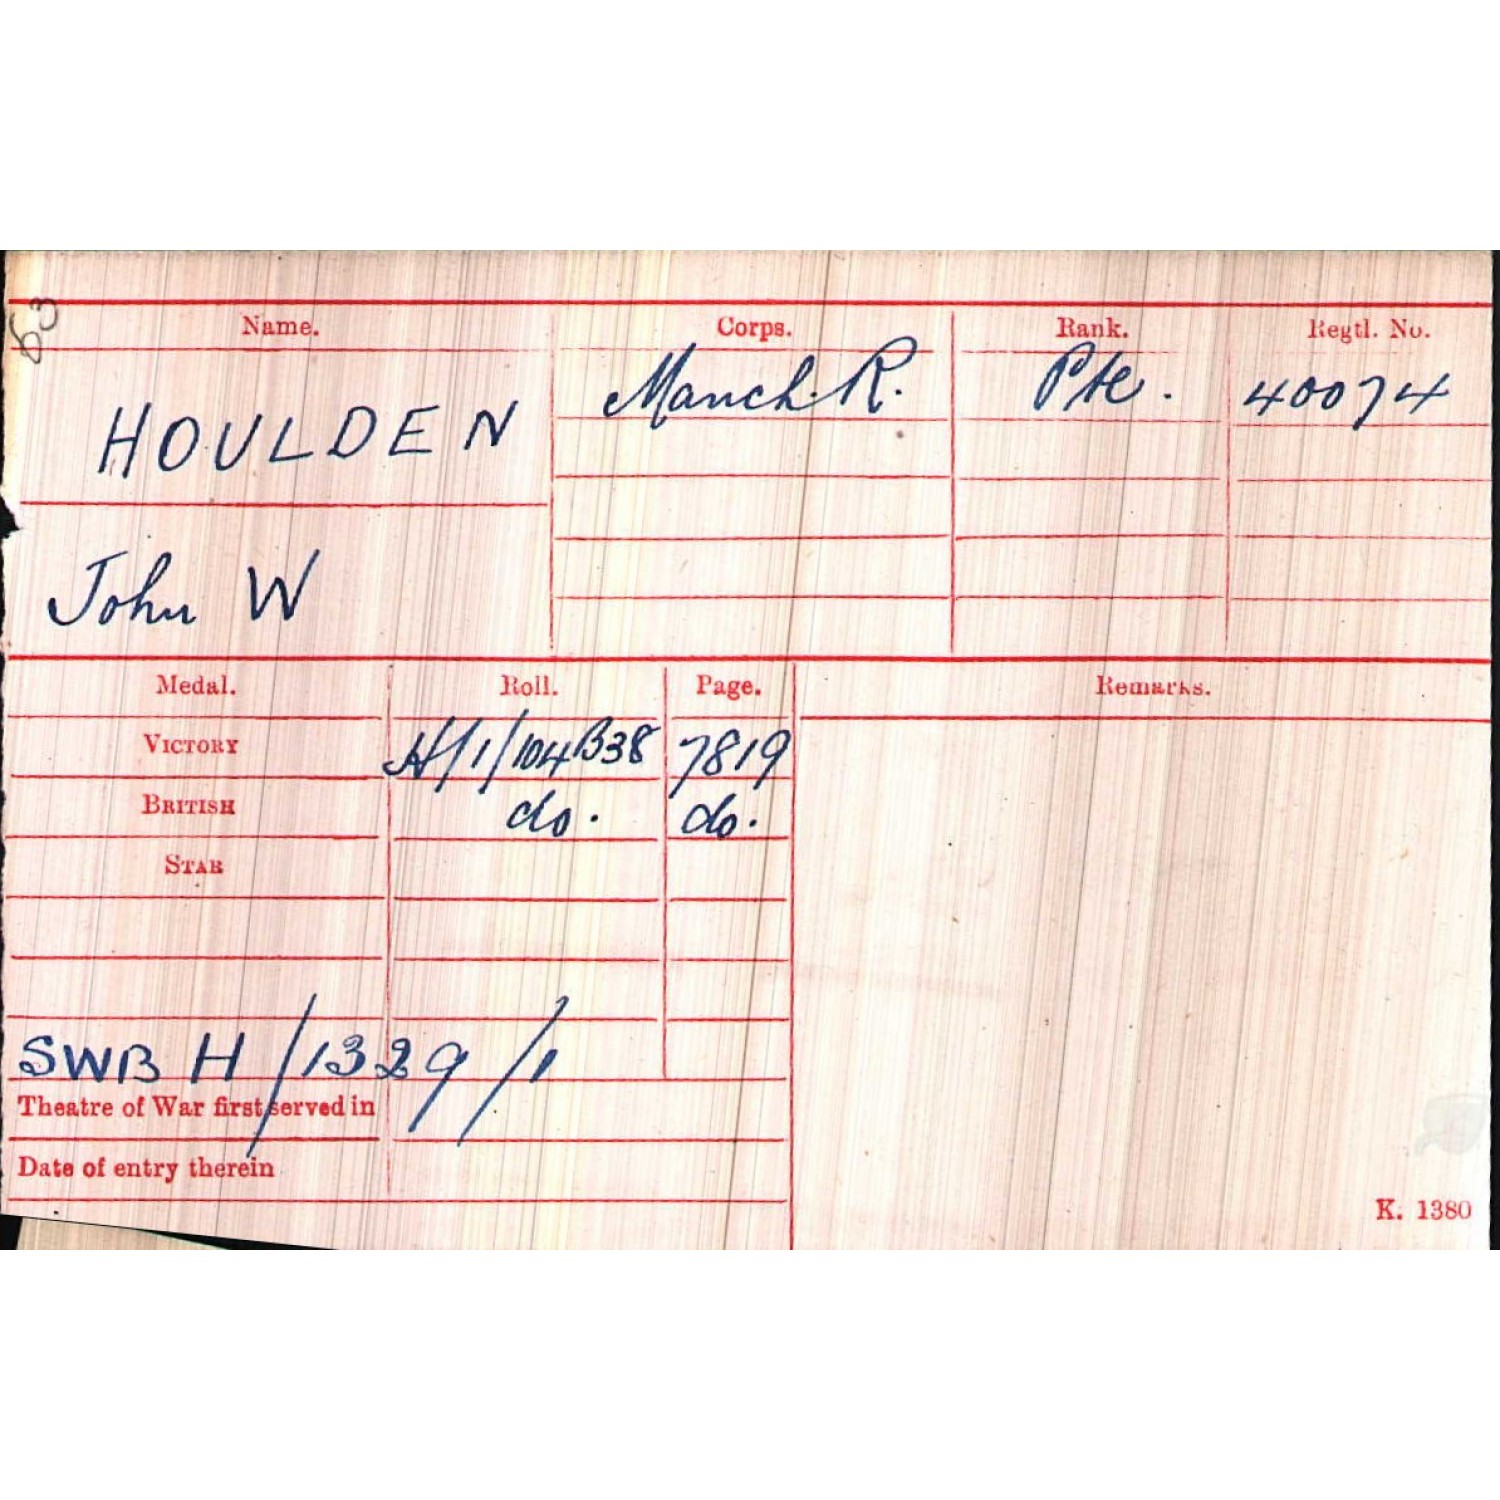 63
Name. Corps. Rank. Regtl. No.
HOULDEN Manch. R. Pte. 40074
John W
Medal. Roll. Page. Remarks.
VICTORY H/1/104B38 7819
BRITISH do. do.
STAR
SWB H/1329/1
Theatre of War first served in
Date of entry therein
K. 1380